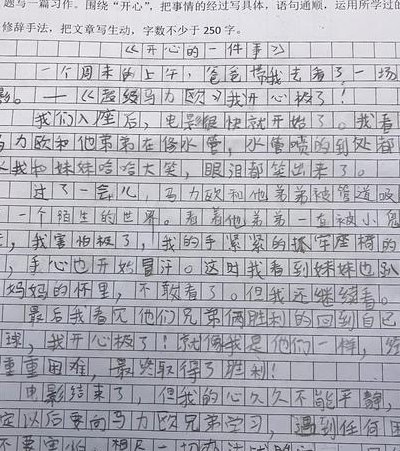 题写一篇习作。围绕“开心”,把事情的经过写具体,语句通顺,运用所学过的
修辞手法,把文章写生动,字数不少于 250 字。
《开心的一件事》
一个周末的上午,爸爸带我去看了一场
影。——《超级马力欧》我开心极了!
我们入座后,电影很快就开始了。我看
力欧和他弟弟在修水管,水管喷的到处都
我和妹妹哈哈大笑,眼泪都笑出来了。
过了一会儿,马力欧和他弟弟被管道吸
一个陌生的世界。看着他弟弟一直被小鬼
,我害怕极了,我的手紧紧的抓牢座椅的
,手心也开始冒汗。这时我看到妹妹也趴
妈妈的怀里,不敢看了。但我还继续看。
最后我看见他们兄弟俩胜利的回到自己
球,我开心极了!就像我是他们一样,经
重重困难,最终取得了胜利!
电影结束了,但我的心久久不能平静,
定以后要向马力欧兄弟学习,遇到任何困
不要害怕,想尽一切办法战胜